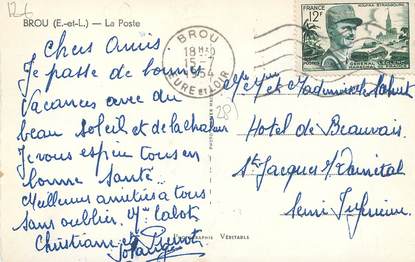 12f
BROU (E.-et-L.) — La Poste
BROU
18H
15-7
1954
EURE et LOIR
FRANCE
12F
KOUFRA-STRASBOURG
POSTES
GÉNÉRAL LECLERC
Chers Amis
Je passe de bonnes
Vacances avec du
beau Soleil et de la chaleur
Je vous espère tous en
bonne Santé
Meilleures amitiés à tous
sans oublier Mr Calot
Christiane et Pierrot
Solange
28
Mr et Madame
Hotel de Beauvais
St Jacques
Seine Inférieure
VÉRITABLE